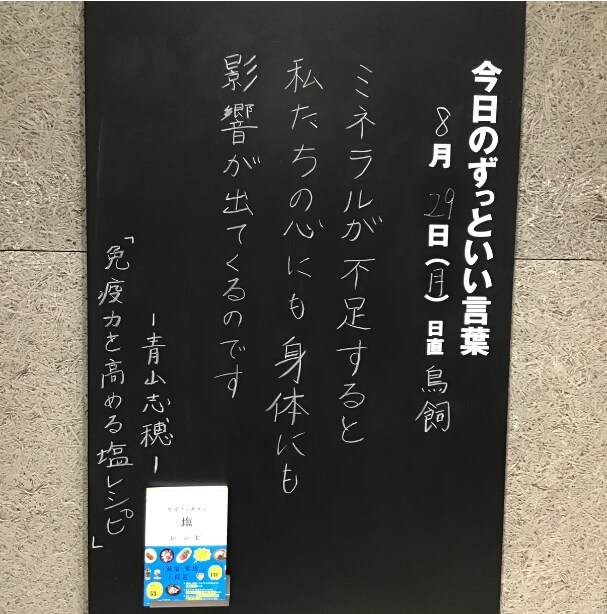 今日のずっといい言葉
8月29日(月)日直 鳥飼
ミネラルが不足すると
私たちの心にも身体にも
影響が出てくるのです
ー青山志穂ー
「免疫力を高める塩レシピ」
免疫力を高める
塩
レシピ